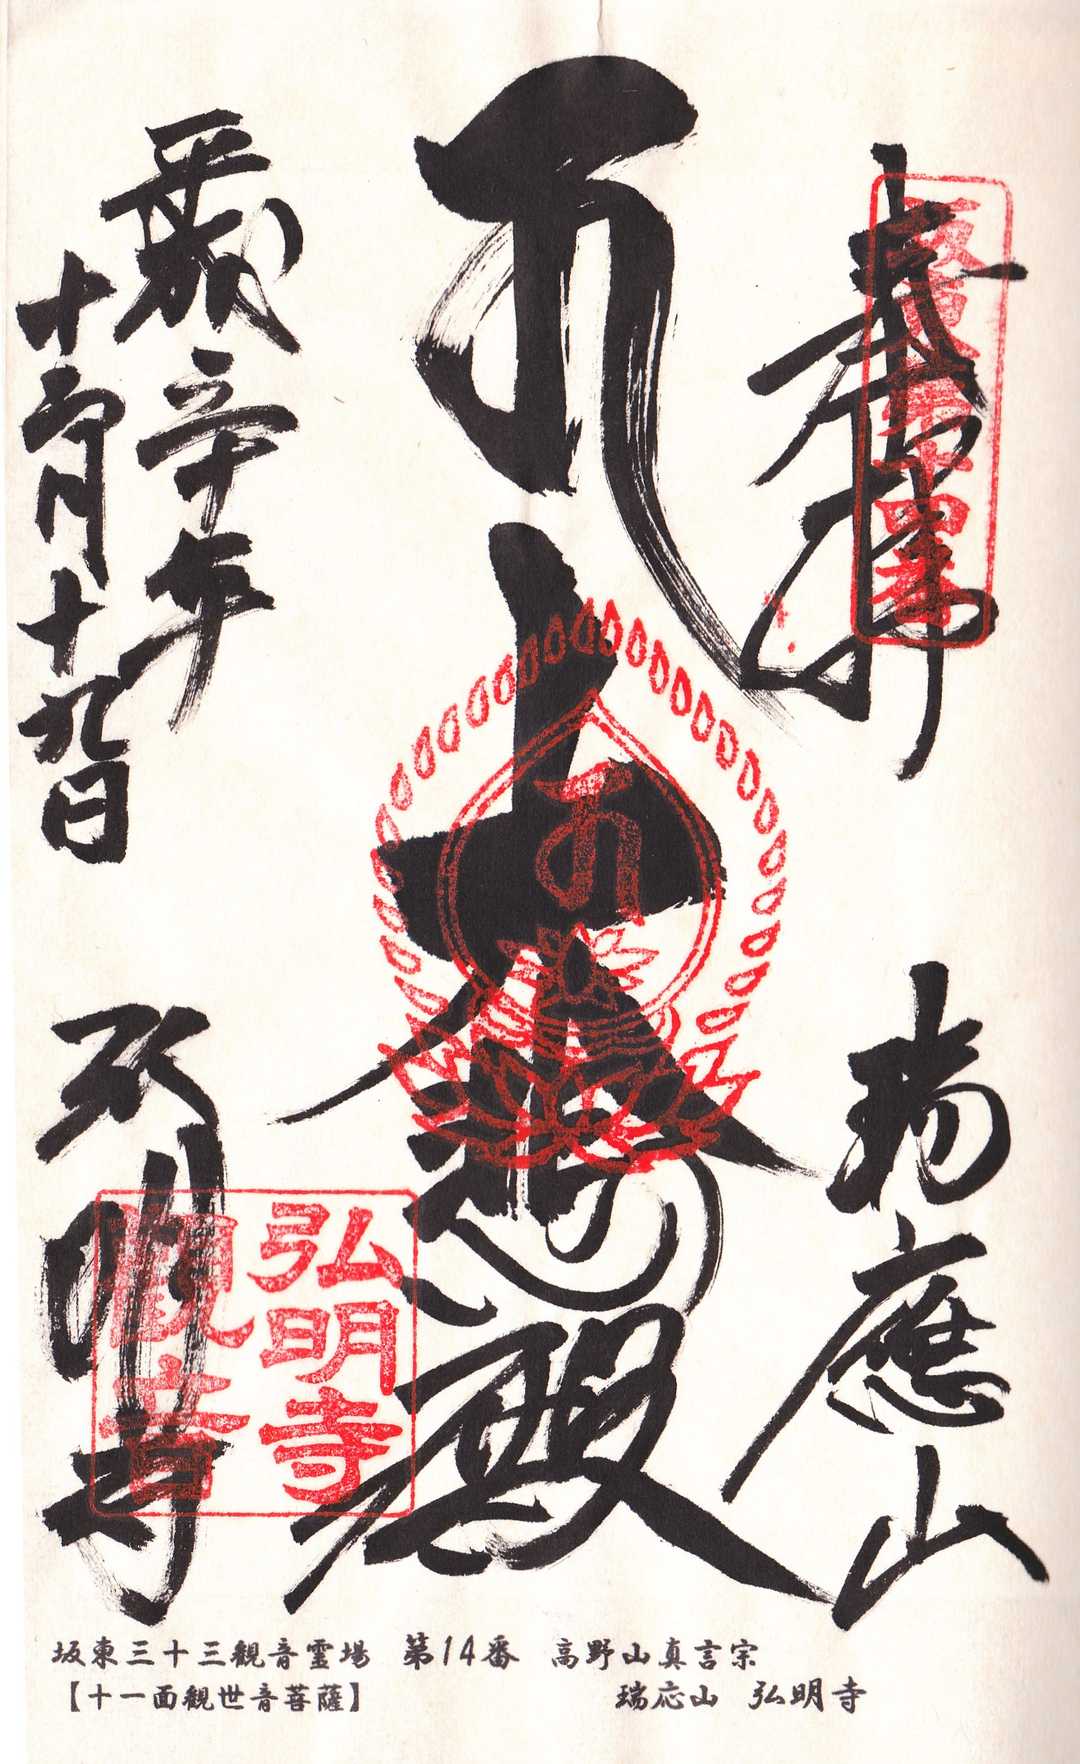 奉拝
坂東第十四番
瑞應山
大悲殿
平成
十二月十九日
弘明寺
弘明寺
觀音
坂東三十三観音霊場 第14番 高野山真言宗
【十一面観世音菩薩】 瑞応山 弘明寺